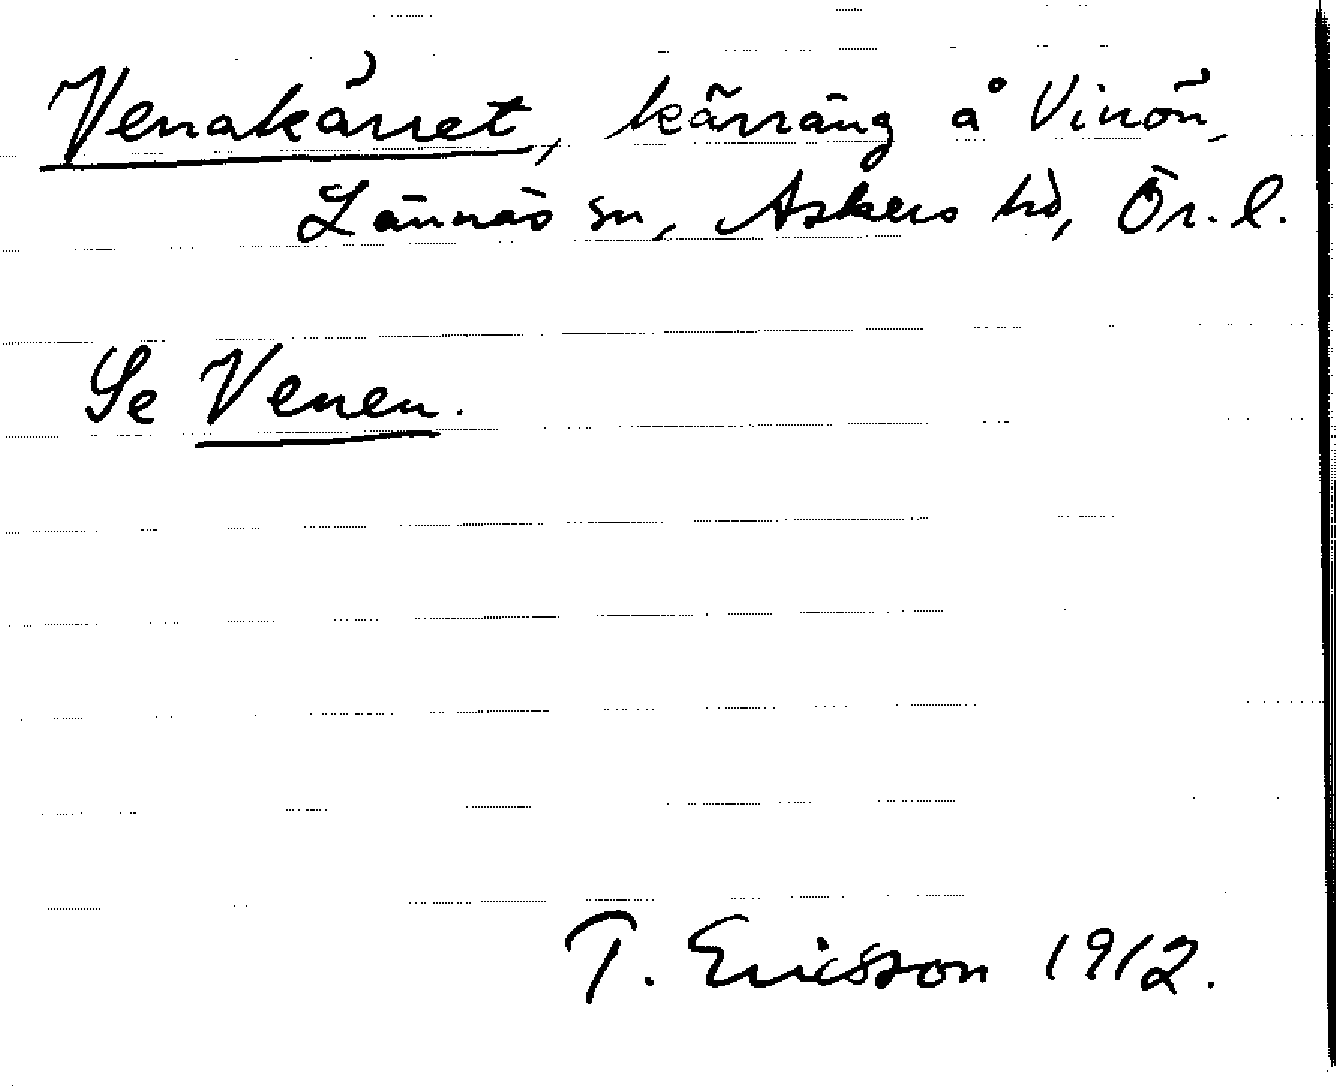 Venakärret, kärräng å Vinön,
Lännäs sn, Askers hd, Ör. l.
Se Venen.
T. Ericsson 1912.